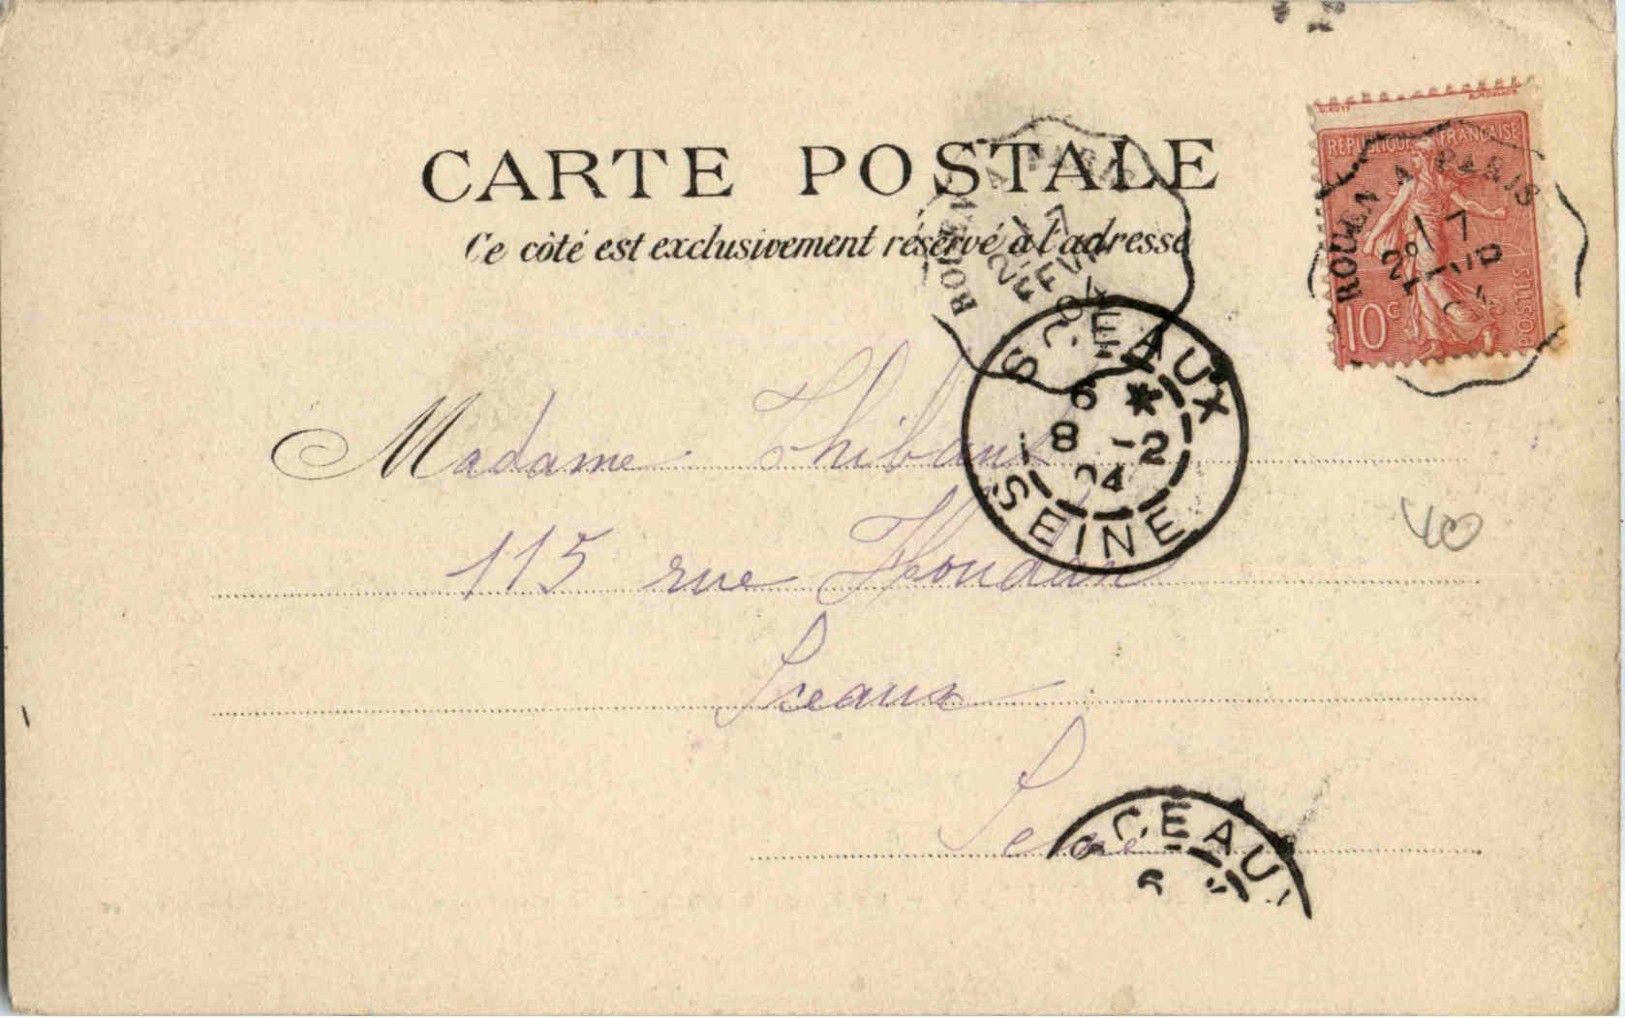 CARTE POSTALE
Ce côté est exclusivement réservé à l'adresse
RÉPUBLIQUE FRANÇAISE
POSTES
10c
ROUEN A PARIS
2° 7
FEVR
04
ROUEN A PARIS
2° 7
FEVR
04
SCEAUX
6 *
8 -2
04
SEINE
Madame Thibaut
115 rue Houdan
Sceaux
Seine
40
SCEAU
6